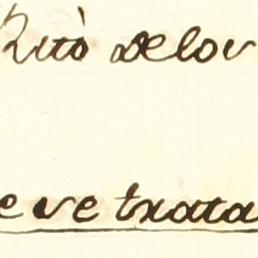 Ritò de lov
e se trata